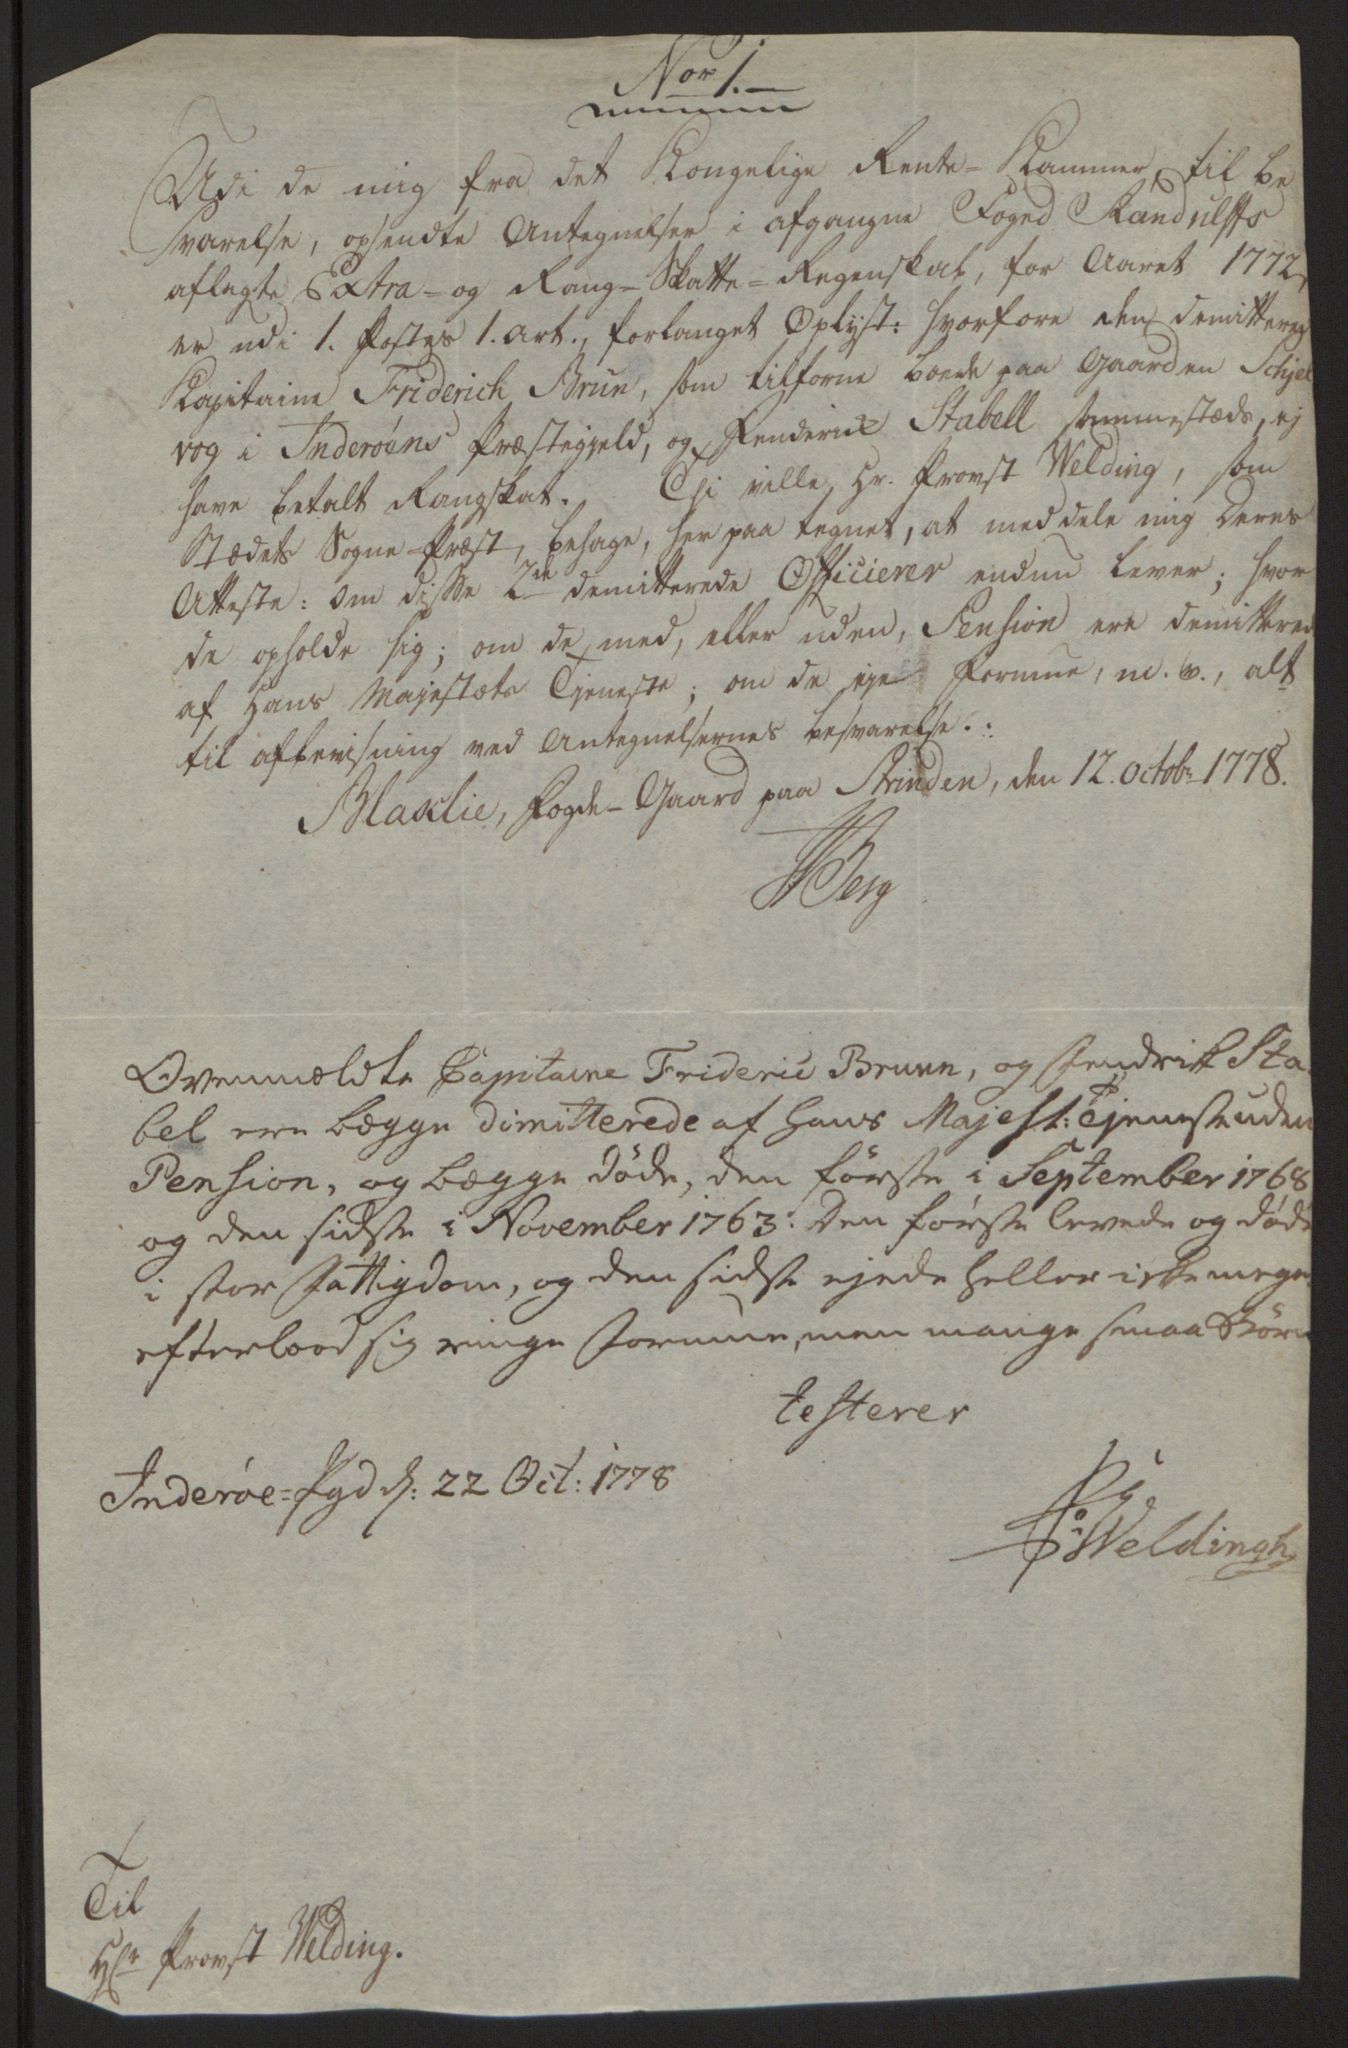 Nor 1.
Udi de mig fra det Kongelige Rente-Kammer, til be
svarelse, opsendte Antegnelser i afgangne Foged Randulffs
aflagte Extra- og Rang-Skatte-Regenskab, for Aaret 1772,
er udi 1. Postes 1. Art., forlanget Oplyst: hvorfore den demittereg
Kapitaine Friderich Brun, som tilforne boede paa Gaarden Schjel
vog i Inderøens Præstegjeld, og Henderick Stabell sammestæds, ej
have betalt Rangskat. Thi ville Hr. Provst Welding, som
Stædets Sogne-Præst, behage, her paa tegnet, at meddele mig Deres
Atteste: om disse 2de demitterede Officierer endnu lever; hvor
de opholde sig; om de med, eller uden, Pension ere demittered
af Hans Majestæts Tjeneste; om de eje Formue, m. v., alt
til afbevisning ved Antegnelsernes besvarelse.:
Blaklie, Fogde-Gaard paa Strinden, den 12. octobr 1778.
Berg
Ovenmeldte Capitaine Frideric Brunn, og Hendrik Sta
bel ere begge dimitterede af Hans Majest: Tjeneste uden
Pension, og begge døde, den første i September 1768
og den sidste i November 1763: Den første levede og døde
i stor Fattigdom, og den sidste ejede heller ikke meget
efterlood sig ringe Formue, men mange smaa Børn
testerer
Inderøe-Pgd d: 22 Oct: 1778
Weldingh
Til
Hr Provst Welding.